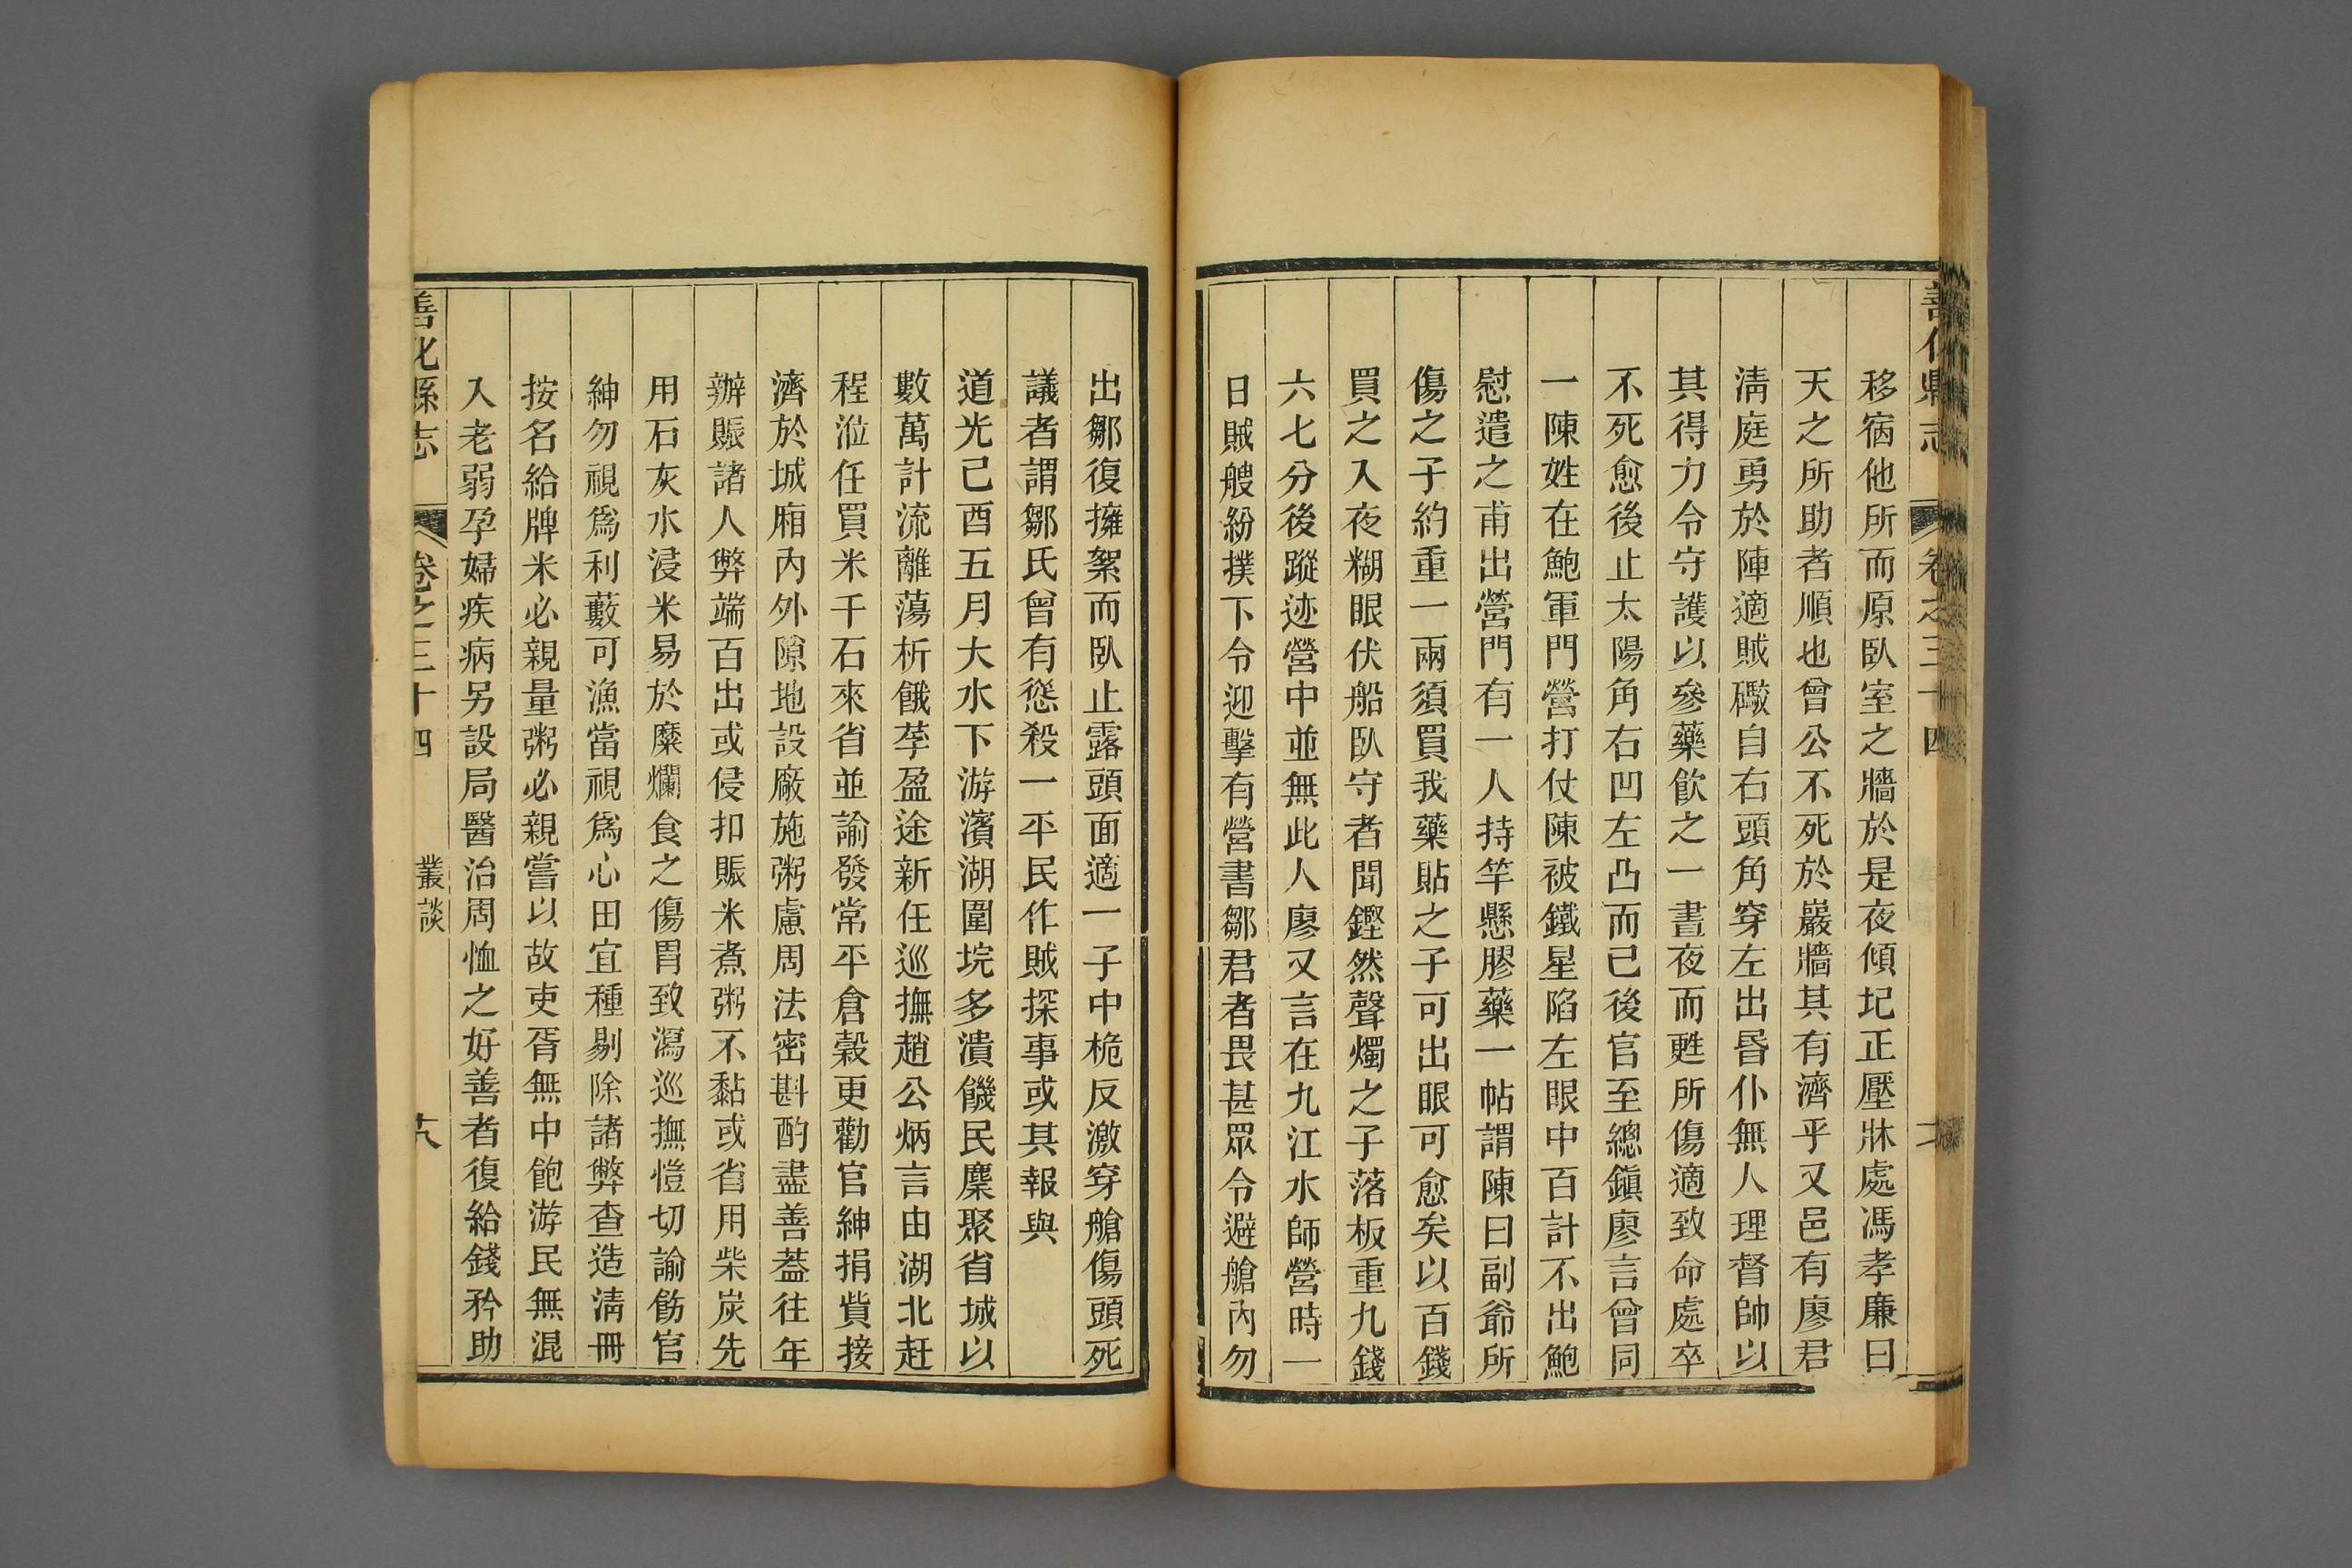 善化縣志
卷之三十四
移宿他所而原臥室之牆於是夜傾圮正壓牀處馮孝廉曰
天之所助者順也曾公不死於巖牆其有濟乎又邑有廖君
淸庭勇於陣適賊礮自右頭角穿左出昏仆無人理督帥以
其得力令守護以參藥飲之一晝夜而甦所傷適致命處卒
不死愈後止太陽角右凹左凸而已後官至總鎭廖言曾同
一陳姓在鮑軍門營打仗陳被鐵星陷左眼中百計不出鮑
慰遣之甫出營門有一人持竿懸膠藥一帖謂陳曰副爺所
傷之子約重一兩須買我藥貼之子可出眼可愈矣以百錢
買之入夜糊眼伏船臥守者聞鏗然聲燭之子落板重九錢
六七分後蹤迹營中並無此人廖又言在九江水師營時一
日賊艘紛撲下令迎擊有營書鄒君者畏甚眾令避艙內勿
出鄒復擁絮而臥止露頭面適一子中桅反激穿艙傷頭死
議者謂鄒氏曾有慫殺一平民作賊探事或其報與
道光己酉五月大水下游濱湖圍垸多潰饑民麇聚省城以
數萬計流離蕩析餓莩盈途新任巡撫趙公炳言由湖北赶
程涖任買米千石來省並諭發常平倉穀更勸官紳捐貲接
濟於城廂內外隙地設廠施粥慮周法密斟酌盡善葢往年
辦賑諸人弊端百出或侵扣賑米煮粥不黏或省用柴炭先
用石灰水浸米易於糜爛食之傷胃致瀉巡撫愷切諭飭官
紳勿視爲利藪可漁當視爲心田宜種剔除諸弊查造淸冊
按名給牌米必親量粥必親嘗以故吏胥無中飽游民無混
入老弱孕婦疾病另設局醫治周恤之好善者復給錢矜助
善化縣志
卷之三十四
叢談